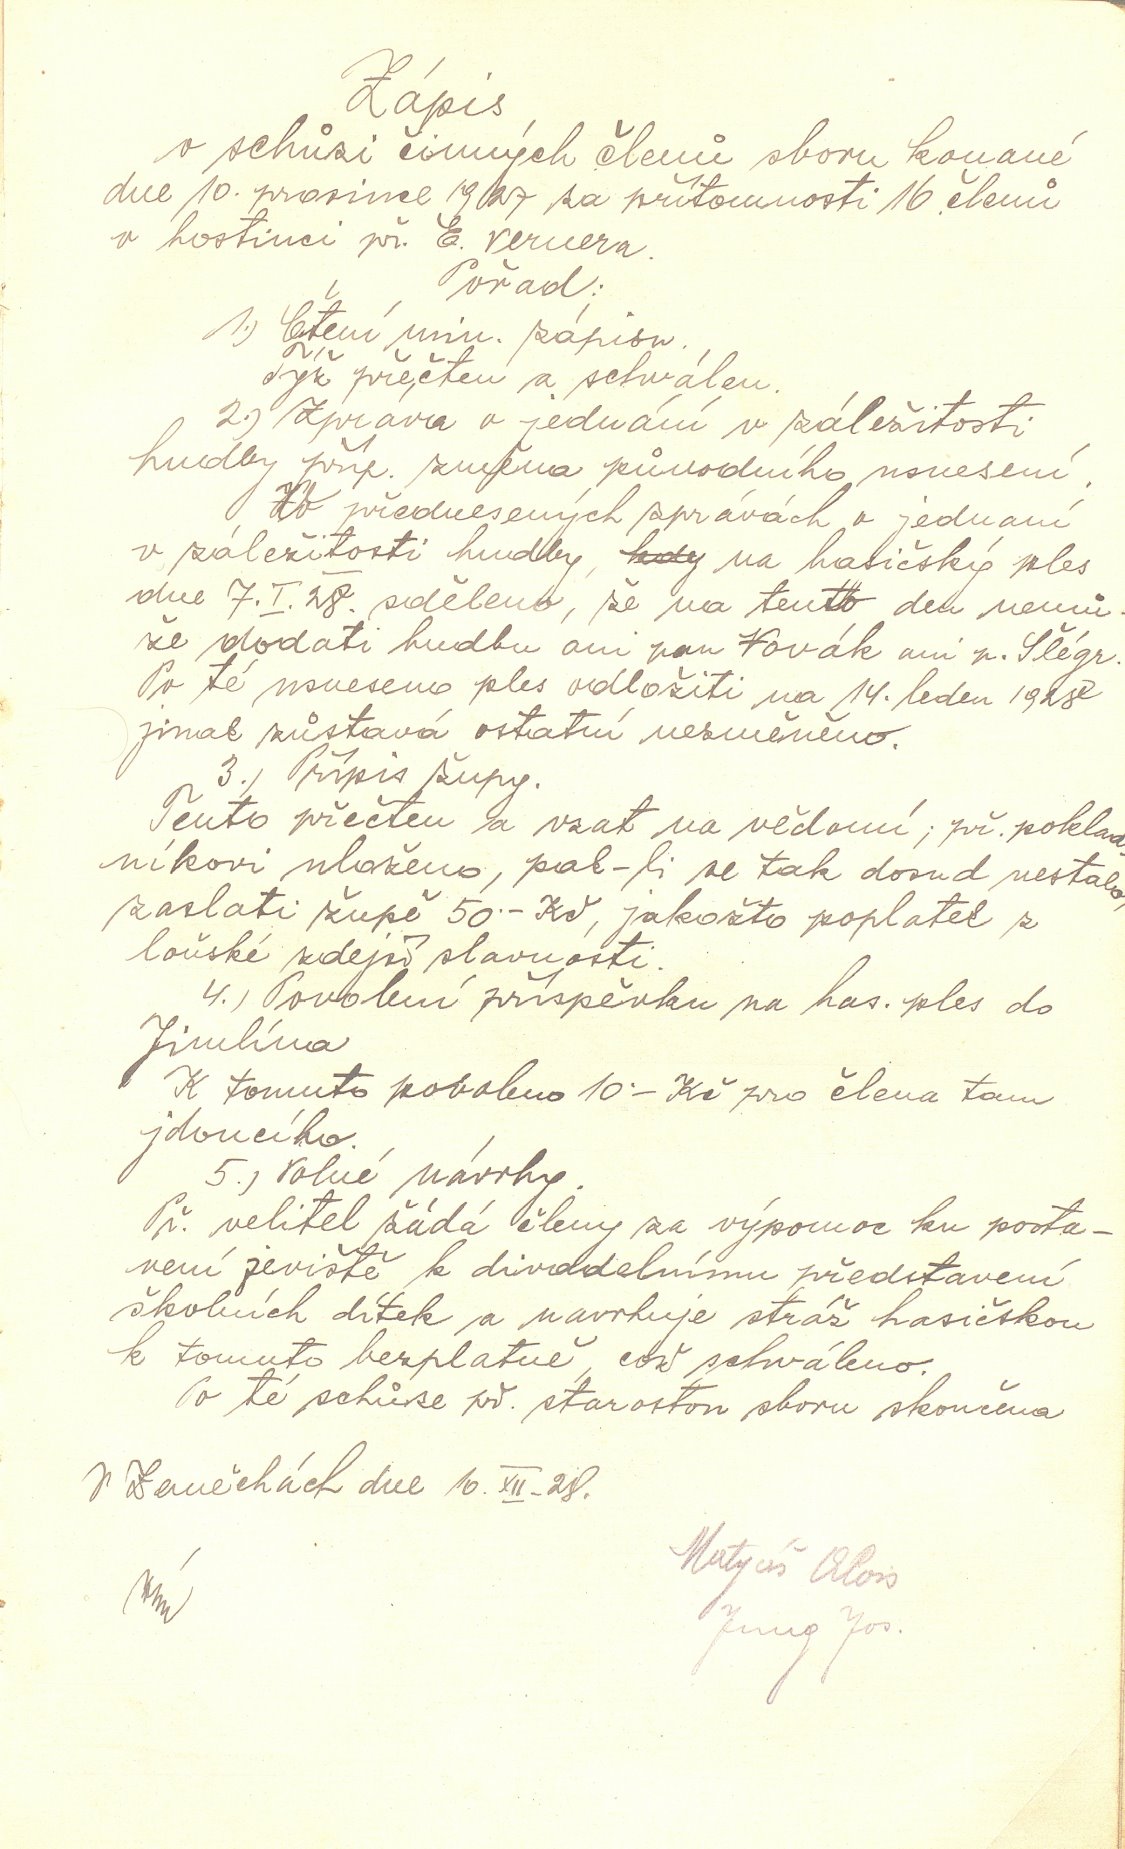 Zápis
o schůzi činných členů sboru konané
dne 10. prosince 1927 za přítomnosti 16 členů
v hostinci př. E. Vernera.
Pořad:
1.) Čtení min. zápisu.
Týž přečten a schválen.
2.) Zpráva o jednání v záležitosti
hudby příp. změna původního usnesení.
Po přednesených zprávách o jednaní
v záležitosti hudby, na hasičský ples
dne 7.I.28. sděleno, že na tento den nemů-
že dodati hudbu ani pan Novák ani p. Šlégr.
Po té usneseno ples odložiti na 14. leden 1928
jinač zůstavá ostatní nezměněno.
3.) Přípis župy.
Tento přečten a vzat na vědomí; př. poklad-
níkovi uloženo, pak-li se tak dosud nestalo,
zaslati župě 50.- Kč, jakožto poplatek z
loňské zdejší slavnosti.
4.) Povolení příspěvku na has. ples do
Jimlína
K tomuto povoleno 10.- Kč pro člena tam
jdoucího.
5.) Volné návrhy.
Př. velitel žádá členy za výpomoc ku posta-
vení jeviště k divadelnímu představení
školních dítek a navrhuje stráž hasičskou
k tomuto bezplatně, což schváleno.
Po té schůze př. starostou sboru skončena
V Zeměchách dne 10. XII-28.
Matyáš Alois
Jung Jos.